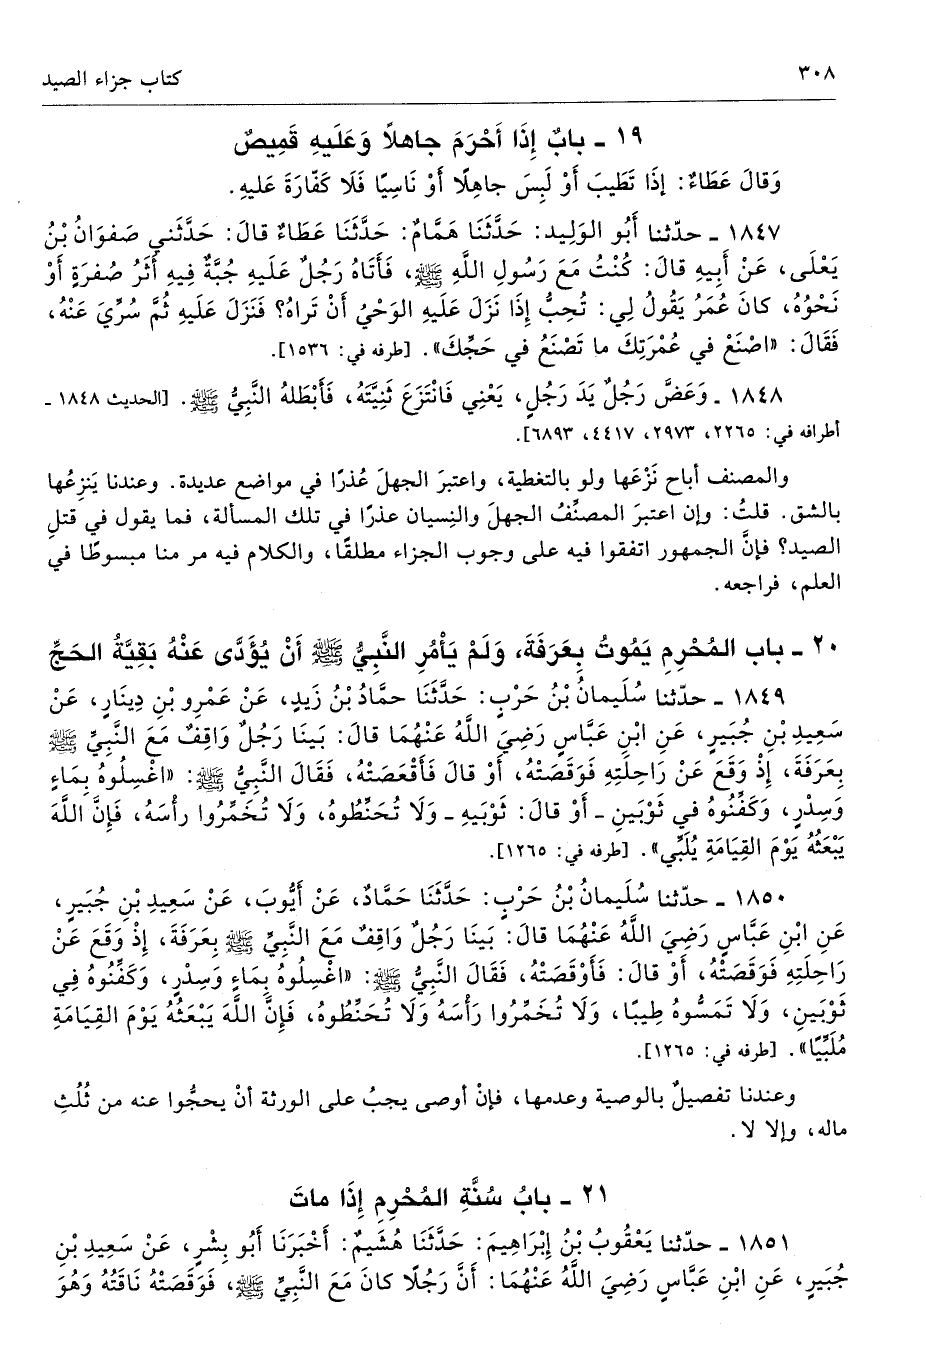 ٣٠٨ كتاب جزاء الصيد
١٩ ـ بابٌ إِذَا أَحْرَمَ جاهلاً وَعَلَيهِ قَمِيصٌ
وَقالَ عَطَاءٌ: إِذَا تَطَيبَ أَوْ لَبِسَ جاهِلًا أَوْ نَاسِيًا فَلَا كَفّارَةَ عَليهِ.
١٨٤٧ ـ حدّثنا أَبُو الوَلِيد: حَدَّثَنَا هَمَّامٌ: حَدَّثَنَا عَطَاءٌ قالَ: حَدَّثَني صَفوَانُ بْنُ
يَعْلَى، عَنْ أَبِيهِ قالَ: كُنْتُ مَعَ رَسُولِ اللَّهِ ﷺ، فَأَتَاهُ رَجُلٌ عَلَيهِ جُبَّةٌ فِيهِ أَثَرُ صُفرَةٍ أَوْ
نَحْوُهُ، كانَ عُمَرُ يَقُولُ لِي: تُحِبُّ إِذَا نَزَلَ عَلَيهِ الوَحْيُ أَنْ تَراهُ؟ فَنَزَلَ عَلَيهِ ثُمَّ سُرِّيَ عَنْهُ،
فَقَالَ: «اصْنَعْ في عُمْرَتِكَ ما تَصْنَعُ في حَجِّكَ». [طرفه في: ١٥٣٦].
١٨٤٨ ـ وَعَضَّ رَجُلٌ يَدَ رَجُلٍ، يَعْنِي فَانْتَزَعَ ثَنِيَّتَهُ، فَأَبْطَلهُ النَّبِيُّ ﷺ. [الحديث ١٨٤٨ ـ
أطرافه في: ٢٢٦٥، ٢٩٧٣، ٤٤١٧، ٦٨٩٣].
والمصنف أباح نَزْعَها ولو بالتغطية، واعتبرَ الجهلَ عُذرًا في مواضع عديدة. وعندنا يَنزِعُها
بالشق. قلتُ: وإن اعتبرَ المصنِّفُ الجهلَ والنِسيان عذرًا في تلك المسألة، فما يقول في قتلِ
الصيد؟ فإنَّ الجمهور اتفقوا فيه على وجوب الجزاء مطلقًا، والكلام فيه مر منا مبسوطًا في
العلم، فراجعه.
٢٠ ـ باب المُحْرِمِ يَمُوتُ بِعَرَفَةَ، وَلَمْ يَأْمُرِ النَّبِيُّ ﷺ أَنْ يُؤَدَّى عَنْهُ بَقِيَّةُ الحَجِّ
١٨٤٩ ـ حدّثنا سُلَيمانُ بْنُ حَرْبٍ: حَدَّثَنَا حمَّادُ بْنُ زَيدٍ، عَنْ عَمْرِو بْنِ دِينَارٍ، عَنْ
سَعِيدِ بْنِ جُبَيرٍ، عَنِ ابْنِ عَبَّاسٍ رَضِيَ اللَّهُ عَنْهُمَا قالَ: بَينَا رَجُلٌ وَاقِفٌ مَعَ النَّبِيِّ ﷺ
بِعَرَفَةَ، إِذْ وَقَعَ عَنْ رَاحِلَتِهِ فَوَقَصَتْهُ، أَوْ قالَ فَأَقْعَصَتْهُ، فَقَالَ النَّبِيُّ ﷺ: «اغْسِلُوهُ بِمَاءٍ
وَسِدْرٍ، وَكَفِّنُوهُ في ثَوْبَينِ ـ أَوْ قالَ: ثَوْبَيهِ ـ وَلَا تُحَنِّطُوهُ، وَلَا تُخَمِّرُوا رأْسَهُ، فَإِنَّ اللَّهَ
يَبْعَثُهُ يَوْمَ القِيَامَةِ يُلَبِّي». [طرفه في: ١٢٦٥].
١٨٥٠ ـ حدّثنا سُلَيمانُ بْنُ حَرْبٍ: حَدَّثَنَا حَمَّادٌ، عَنْ أَيُّوبَ، عَنْ سَعِيدِ بْنِ جُبَيرٍ،
عَنِ ابْنِ عَبَّاسٍ رَضِيَ اللَّهُ عَنْهُمَا قالَ: بَينَا رَجُلٌ وَاقِفٌ مَعَ النَّبِيِّ ﷺ بِعَرَفَةَ، إِذْ وَقَعَ عَنْ
رَاحِلَتِهِ فَوَقَصَتْهُ، أَوْ قالَ: فَأَوْقَصَتْهُ، فَقَالَ النَّبِيُّ ﷺ: «اغْسِلُوهُ بِمَاءٍ وَسِدْرٍ، وَكَفِّنُوهُ فِي
ثَوْبَينِ، وَلَا تَمَسُّوهُ طِيبًا، وَلَا تُخَمِّرُوا رَأْسَهُ وَلَا تُحَنِّطُوهُ، فَإِنَّ اللَّهَ يَبْعَثُهُ يَوْمَ القِيَامَةِ
مُلَبِّيًا». [طرفه في: ١٢٦٥].
وعندنا تفصيلٌ بالوصية وعدمها، فإنْ أوصى يجبُ على الورثة أنْ يحجُّوا عنه من ثُلُثِ
ماله، وإلا لا.
٢١ ـ بابُ سُنَّةِ المُحْرِمِ إِذَا ماتَ
١٨٥١ ـ حدّثنا يَعْقُوبُ بْنُ إِبْرَاهِيمَ: حَدَّثَنَا هُشَيمٌ: أَخْبَرَنَا أَبُو بِشْرٍ، عَنْ سَعِيدِ بْنِ
جُبَيرٍ، عَنِ ابْنِ عَبَّاسٍ رَضِيَ اللَّهُ عَنْهُمَا: أَنَّ رَجُلًا كانَ مَعَ النَّبِيِّ ﷺ، فَوَقَصَتْهُ نَاقَتُهُ وَهُوَ